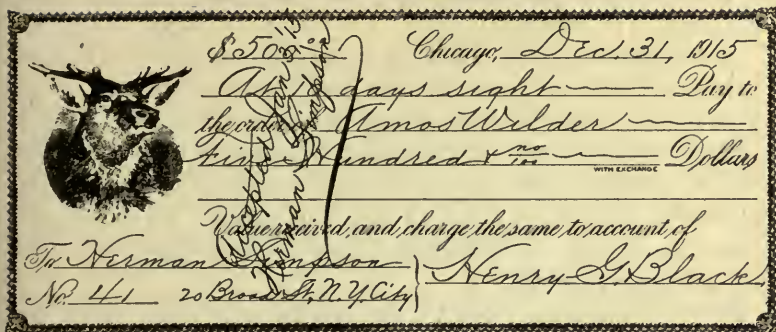 $500.00 Chicago, Dec. 31, 1915
At 10 days sight Pay to
the order of Amos Wilder
Five Hundred & no/100 Dollars
WITH EXCHANGE
Value received, and charge the same to account of
To Herman Simpson
Henry G. Black
No. 41 20 Broad St, N.Y. City
Accepted Jan 3/'15
Herman Simpson